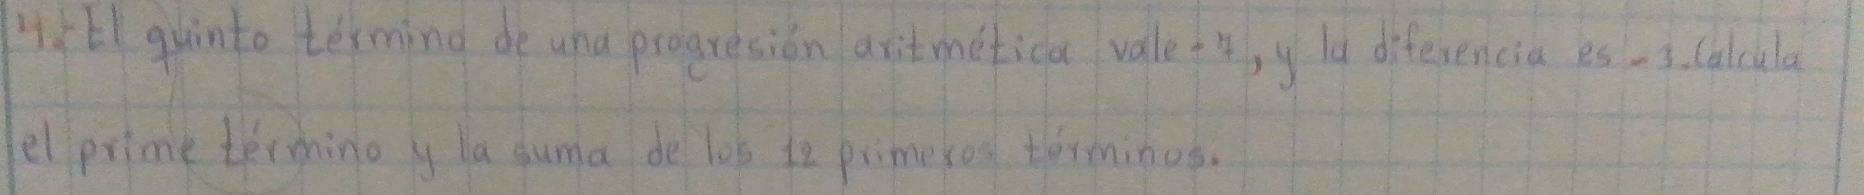 4.- El quinto término de una progresión aritmética vale -7, y la diferencia es -3. Calcula
el prime término y la suma de los 12 primeros términos.